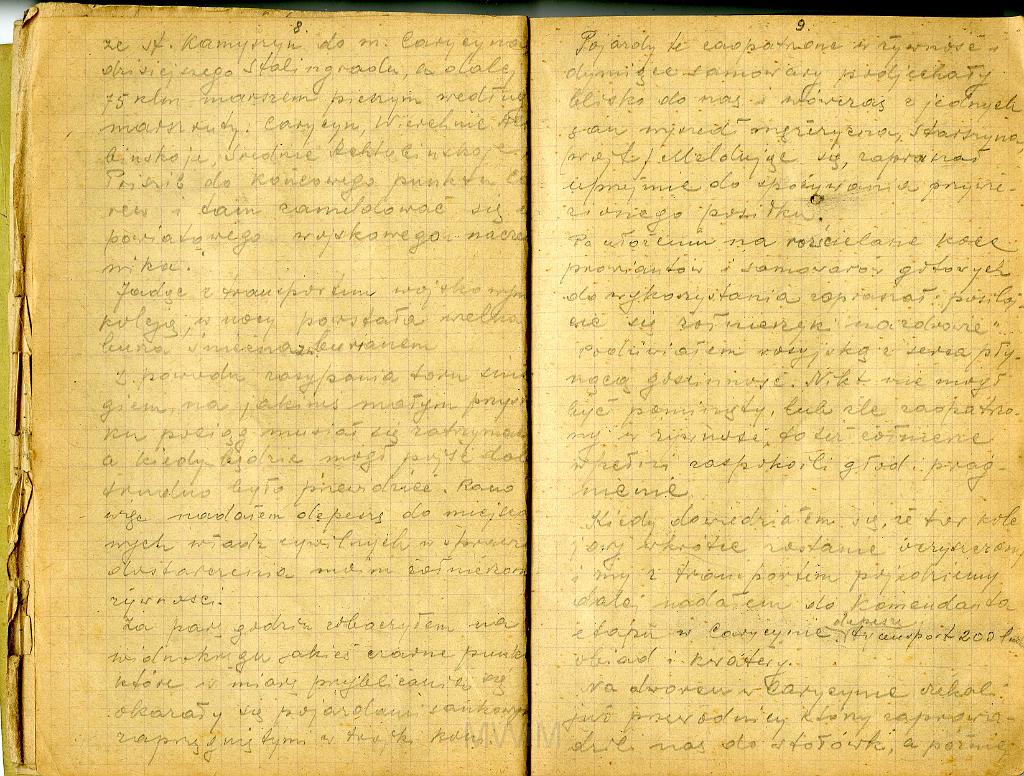 8.
ze st. Kamyszyn do m. Carycyna
dzisiejszego Stalingradu, a dalej
75 klm marszem pieszym według
marszrudy. Carycyn, Wierchnie
binskoje, Srednie Achtubinskoje
Priszib do końcowego punktu
rew i tam zameldować się
powiatowego wojskowego nacze
nika."
Jadąc z transportem wojskowym
koleją, w nocy powstała wielka
burza śnieżna z buranem
Z powodu zasypania toru śnie
giem, na jakimś małym przys
ku pociąg musiał się zatrzymać
a kiedy będzie mógł pójść dal
trudno było przewidzieć. Rano
więc nadałem depeszę do miejsco
wych władz cywilnych w sprawie
dostarczenia moim żołnierzom
żywności.
Za parę godzin zobaczyłem na
widnokręgu jakieś czarne punk
które w miarę przybliżania się
okazały się pojazdami sankowymi
zaprzęgniętymi w trójki koni
9.
Pojazdy te zaopatrzone w żywność i
dymiące samowary podjechały
blisko do nas i wówczas z jednych
sań wyszedł mężczyzna, starszyna
Meldując się, zapraszał
uprzejmie do spożywania przywie-
zionego posiłku.
Po ułożeniu na rozścielane koce
prowiantów i samowarów gotowych
do wykorzystania zapraszał: posilaj
cie się żołnierzyk nazdrowie"
Podziwiałem rosyjską z serca pły-
nącą gościnność. Nikt nie mógł
być pominięty, lub źle zaopatrzo
ny w żywność, toteż żołnierze
wpełni zaspokoili głód i prag-
nienie.
Kiedy dowiedziałem się, że tor kole
jowy wkrótce zostanie oczyszczony
i my z transportem pojedziemy
dalej nadałem do Komendanta
depeszę
etapu w Carycynie transport 200 ludzi
obiad i kwatery.
Na dworcu w Carycynie czekali
już przewodnicy który zaprowa-
dzil nas do stołówki, a później
MWM